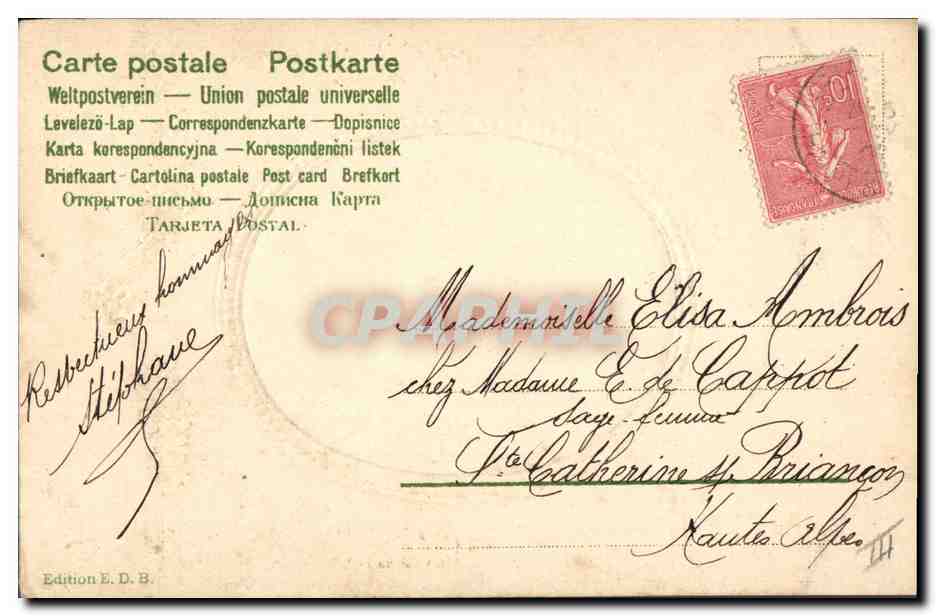 Carte postale Postkarte
Weltpostverein — Union postale universelle
Levelező-Lap — Correspondenzkarte — Dopisnice
Karta korespondencyjna — Korespondenční listek
Briefkaart - Cartolina postale Post card Brefkort
Открытое письмо — Дописна Карта
TARJETA POSTAL
10c
POSTES
REPUBLIQUE FRANÇAISE
Respectueux hommages
Stéphane
CPAPHIL
Mademoiselle Elisa Ambrois
chez Madame E. de Cappot
sage-femme
Ste Catherine s/ Briançon
Hautes Alpes
Edition E. D. B.